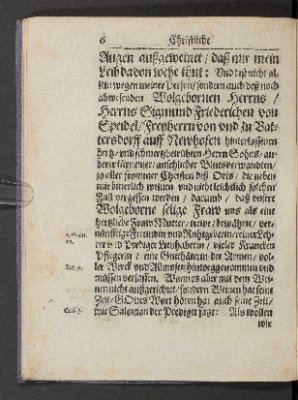 6 Christliche
Augen außgeweinet / daß mir mein
Leib davon wehe thut: Und diß nicht al-
lein wegen meiner Person / sondern auch deß noch
abwesenden Wolgebornen Herrns /
Herrns Sigmund Friederichen von
Speidel / Freyherrn von und zu Vat-
tersdorff auff Newhofen hinterlassenen
hertz- und schmertzbetrübten Herrn Sohns / an-
derer fürnemer / ansehlicher Blutsverwandten /
ja aller frommer Christen deß Orts / die neben
mir bitterlich weinen und nicht leichtlich solchen
Fall vergessen werden / darumb / daß unsere
Wolgeborne selige Fraw uns als eine
hertzliche Fraw Mutter / trewe / bewährte / ver-
Freundin und Rahtgeberin / einer Lehr-
er und Prediger Liebhaberin / vieler Francken
Pflegerin / eine Gutthäterin der Armen / vol-
Act. 9. ler Werck und Allmosen hinweggenommen und
müssen verlassen. Wann es aber mit dem Wei-
nen nicht außgerichtet / sondern Weinen hat seine
Zeit / GOttes Wort hören hat auch seine Zeit /
wie Salomon der Prediger sagt: Als wollen
wir